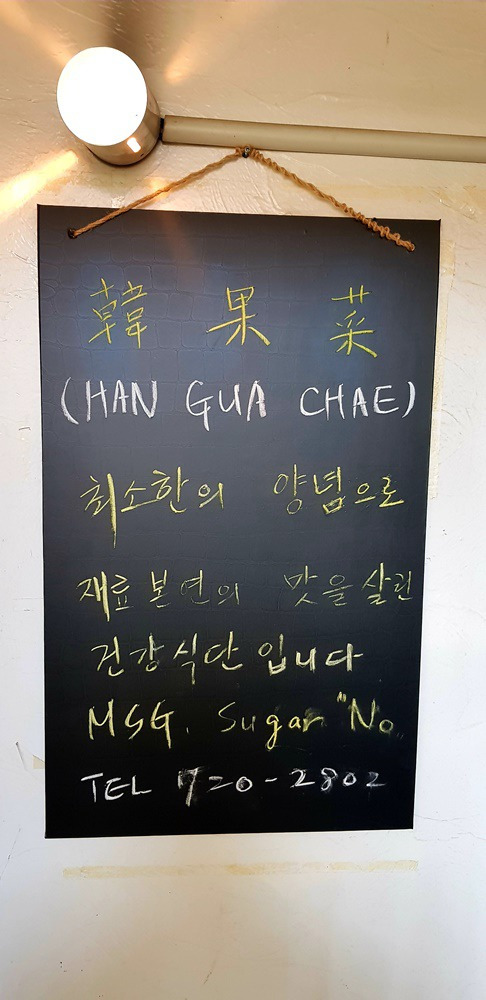 韓 果 菜
(HAN GUA CHAE)
최소한의 양념으로
재료 본연의 맛을 살린
건강식단 입니다
MSG. Sugar "No"
TEL 720-2802